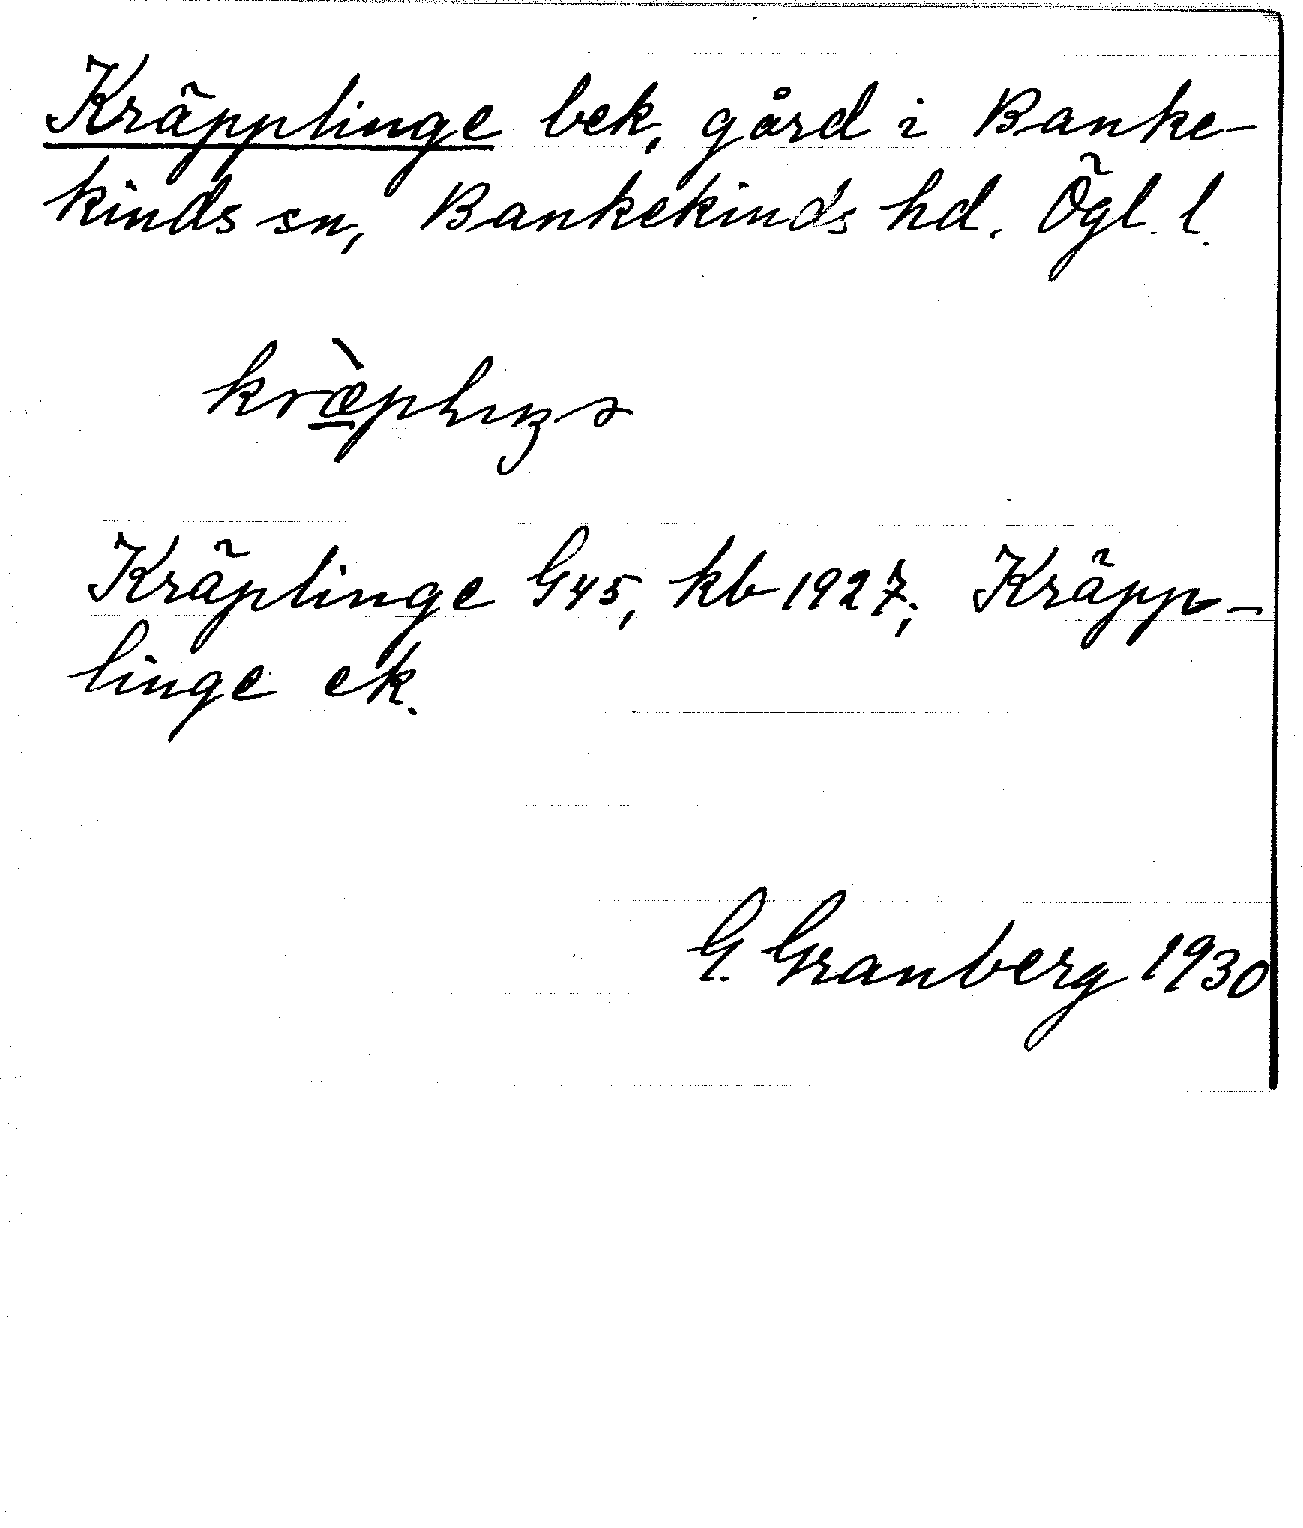 Kräpplinge bek, gård i Banke-
kinds sn, Bankekinds hd. Ögl. l.
kræ̀plıŋə
Kräplinge G45, kb 1927; Kräpp-
linge ek.
G. Granberg 1930